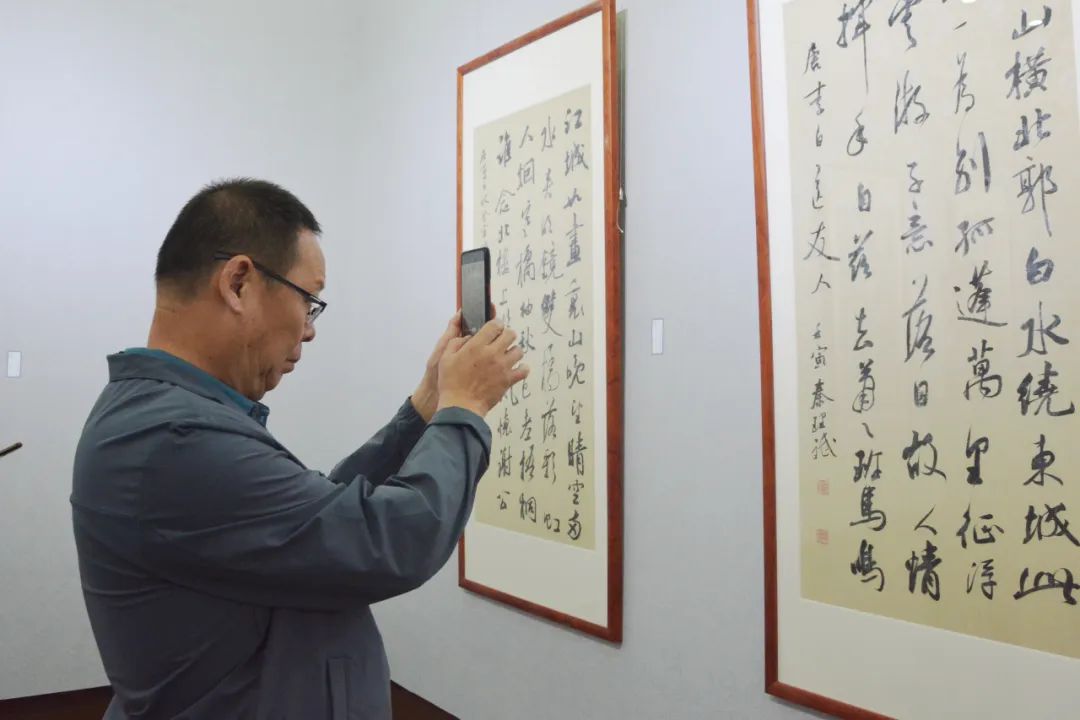 山橫北郭白水繞東城此
一為別孤蓬萬里征浮
雲游子意落日故人情
揮手自茲去蕭〻班馬鳴
唐李白送友人 壬寅 秦
江城如畫裏山晚望晴空兩
水夾明鏡雙橋落彩虹
人烟寒橘柚秋色老梧桐
誰念北樓上風懷謝公